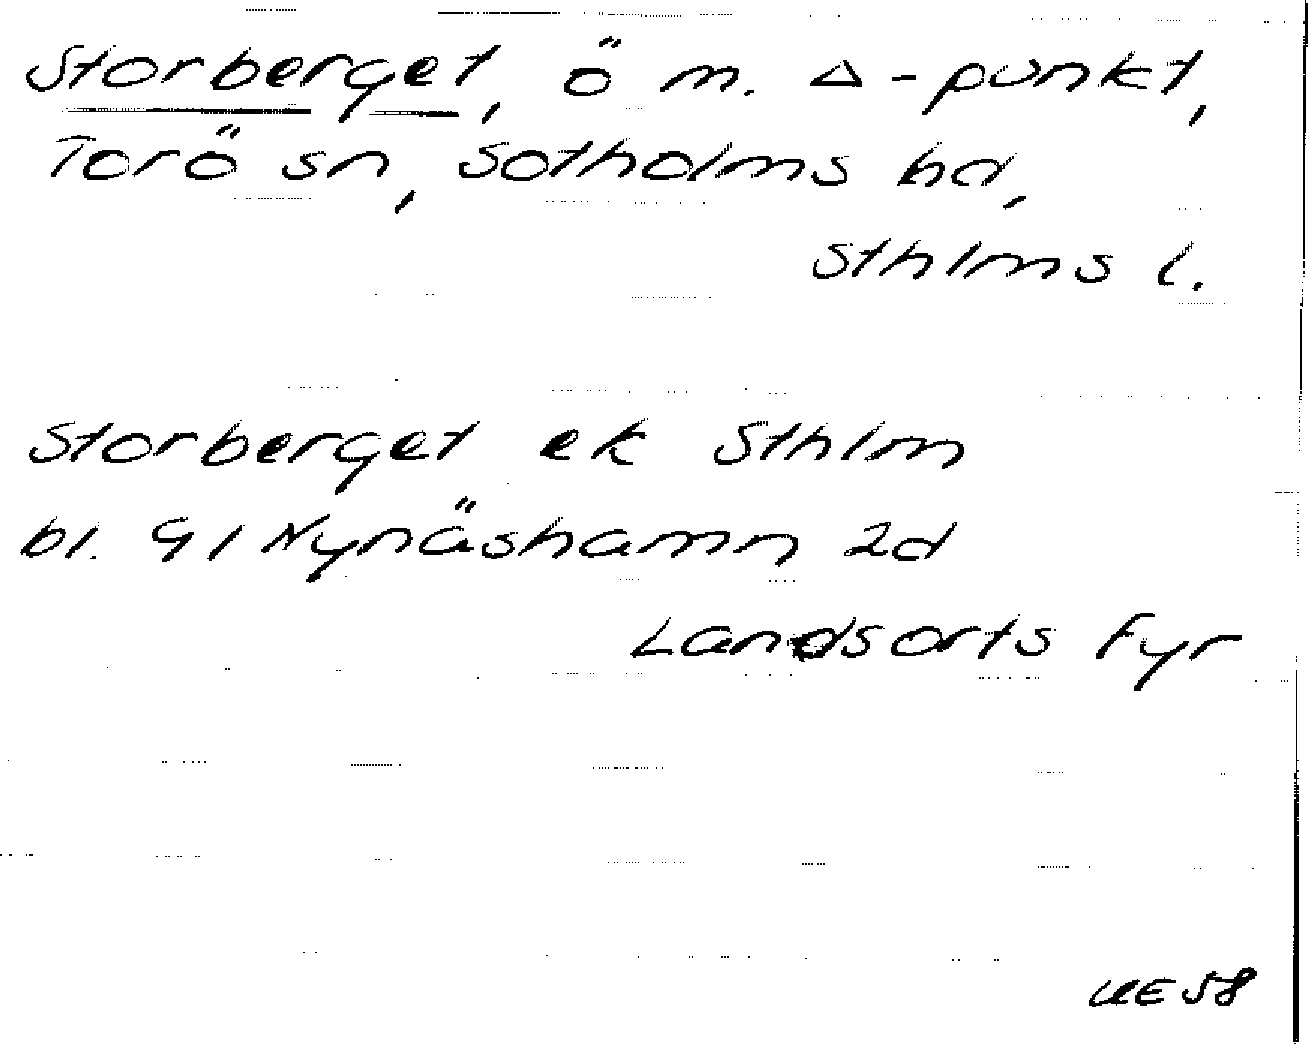 Storberget, ö m. Δ-punkt,
Torö sn, Sotholms hd,
Sthlms l.
Storberget ek Sthlm
bl. 91 Nynäshamn 2d
Landsorts Fyr
UE 58